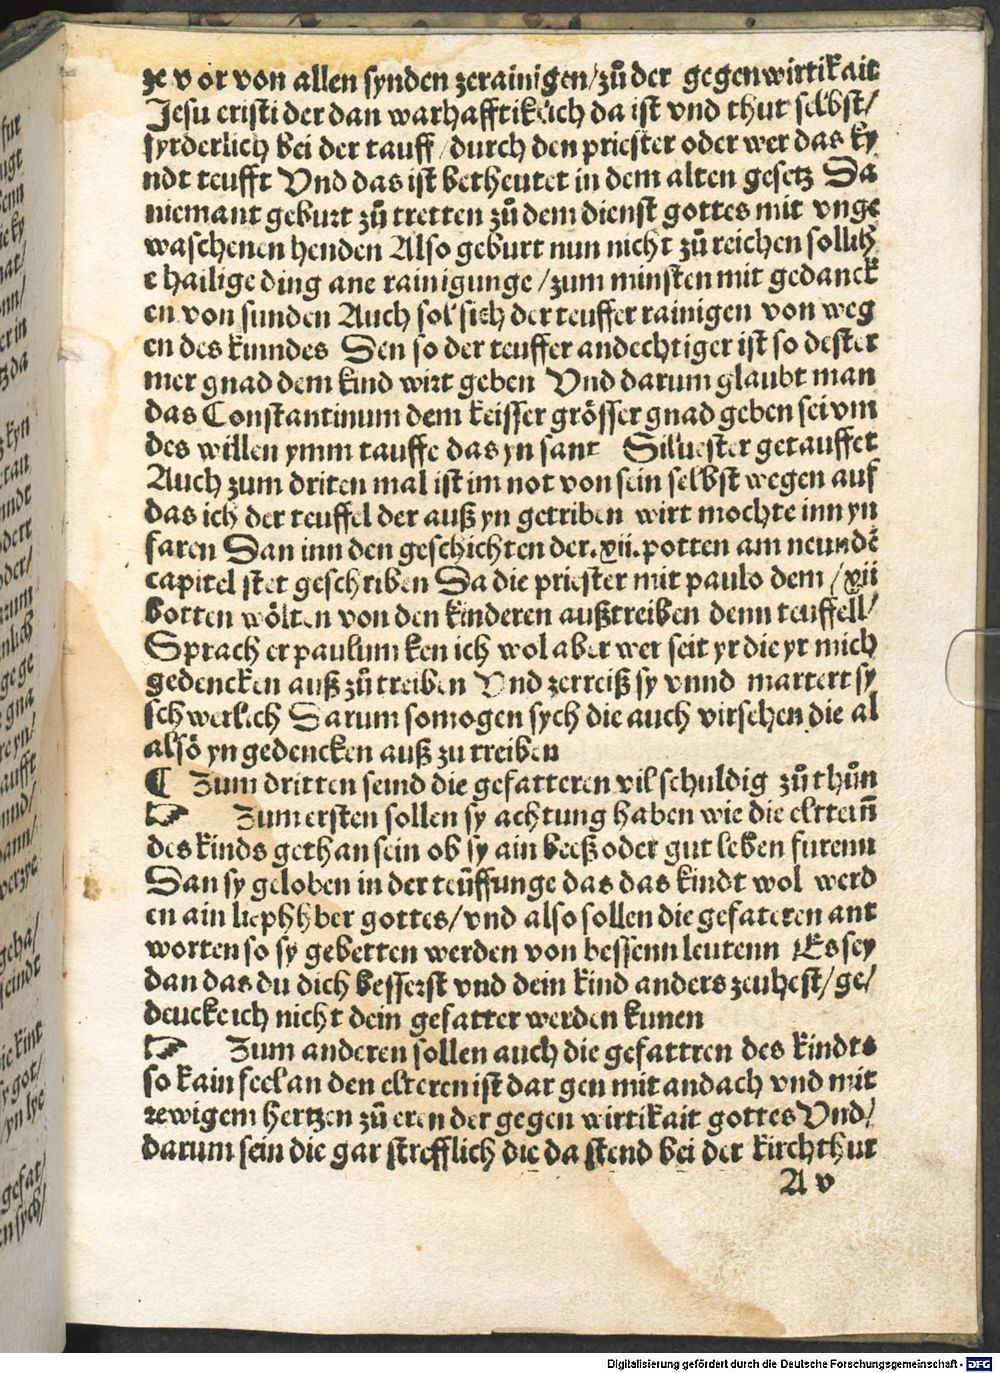 ze vor von allen synden zerainigen/zů der gegenwirtikait
Jesu cristi der dan warhafftiklich da ist vnd thut selbst/
fyrderlich bei der tauff/durch den priester oder wer das ky
ndt teufft Vnd das ist betheutet in dem alten gesetz Da
niemant geburt zů tretten zů dem dienst gottes mit vnge
waschenen henden Also geburt nun nicht zů reichen sollich
e hailige ding ane rainigunge/zum minsten mit gedanck
en von sunden Auch sol sich der teuffer rainigen von weg
en des kinndes Den so der teuffer andechtiger ist so dester
mer gnad dem kind wirt geben Vnd darum glaubt man
das Constantinum dem keisser grösser gnad geben sei vm
des willen ymm tauffe das yn sant Siluester getauffet
Auch zum driten mal ist im not von sein selbst wegen auf
das ich der teuffel der auß yn getriben wirt mochte inn yn
faren Dan inn den geschichten der.xii.potten am neundē
capitel stet geschriben Da die priester mit paulo dem/xii
botten wölten von den kinderen außtreiben denn teuffell/
Sprach er paulum ken ich wol aber wer seit yr die yr mich
gedencken auß zů treiben Vnd zerreiß sy vnnd martert sy
schwerlich Darum somogen sych die auch virsehen die al
alsö yn gedencken auß zu treiben
¶ Zum dritten seind die gefatteren vil schuldig zů thůn
☞ Zum ersten sollen sy achtung haben wie die elttern̄
des kinds gethan sein ob sy ain beeß oder gut leben furenn
Dan sy geloben in der teůffunge das das kindt wol werd
en ain liephhber gottes/vnd also sollen die gefateren ant
worten so sy gebetten werden von bessenn leutenn Es sey
dan das du dich besserst vnd dein kind anders zeuhest/ge/
deucke ich nicht dein gefatter werden kunen
☞ Zum anderen sollen auch die gefattren des kindts
so kain feel an den elteren ist dar gen mit andach vnd mit
rewigem hertzen zů eren der gegen wirtikait gottes Vnd/
darum sein die gar strefflich die da stend bei der kirchthur
A v
Digitalisierung gefördert durch die Deutsche Forschungsgemeinschaft - DFG